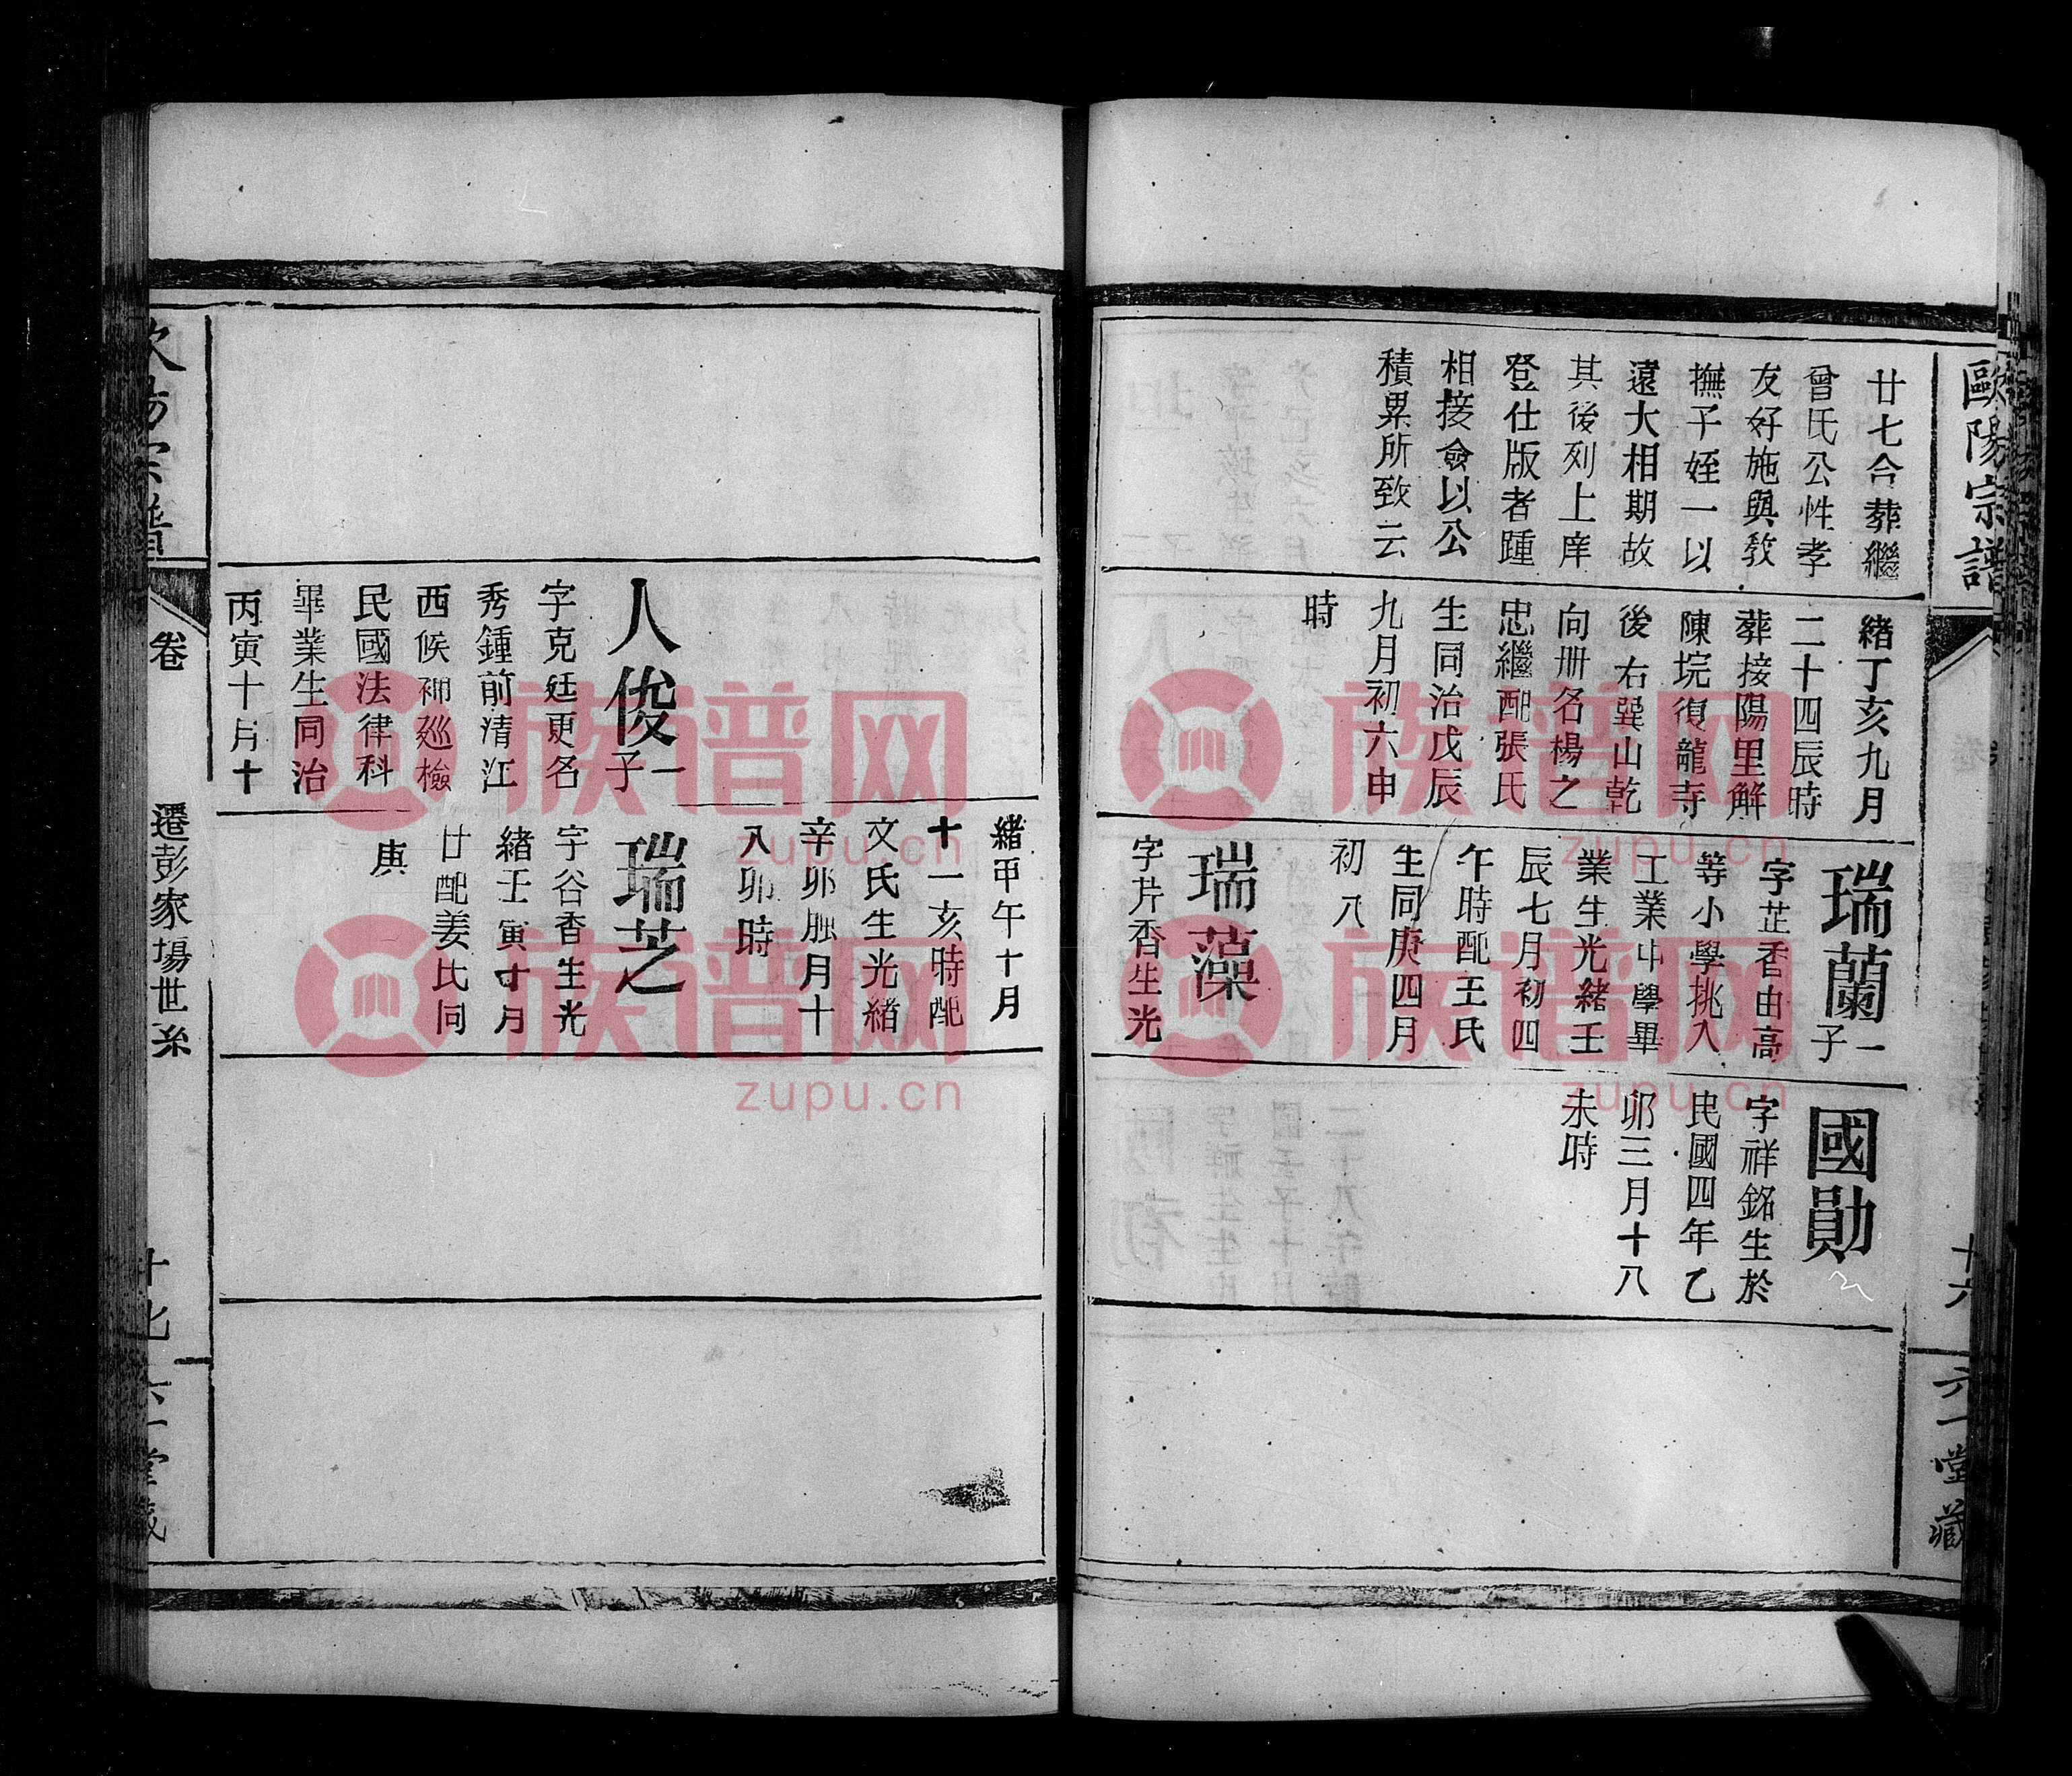 歐陽宗譜
十六
六一堂藏
廿七合葬繼
曾氏公性孝
友好施與敎
撫子姪一以
遠大相期故
其後列上庠
登仕版者踵
相接僉以公
積累所致云
緒丁亥九月
二十四辰時
葬接陽里解
陳垸復龍寺
後右巽山乾
向冊名楊之
忠繼配張氏
生同治戊辰
九月初六申
時
瑞蘭一子
字芷香由高
等小學挑入
工業中學畢
業生光緒壬
辰七月初四
午時配王氏
生同庚四月
初八
瑞藻
字芹香生光
國勛
字祥銘生於
民國四年乙
卯三月十八
未時
人俊一子
字克廷更名
秀鍾前清江
西候補廵檢
民國法律科
畢業生同治
丙寅十月十
緒甲午十月
十一亥時配
文氏生光緒
辛卯臘月十
八卯時
瑞芝
字谷香生光
緒壬寅十月
廿配姜氏同
庚
卷
遷彭家場世系
六一堂藏
族谱网
zupu.cn
族谱网
zupu.cn
族谱网
zupu.cn
族谱网
zupu.cn